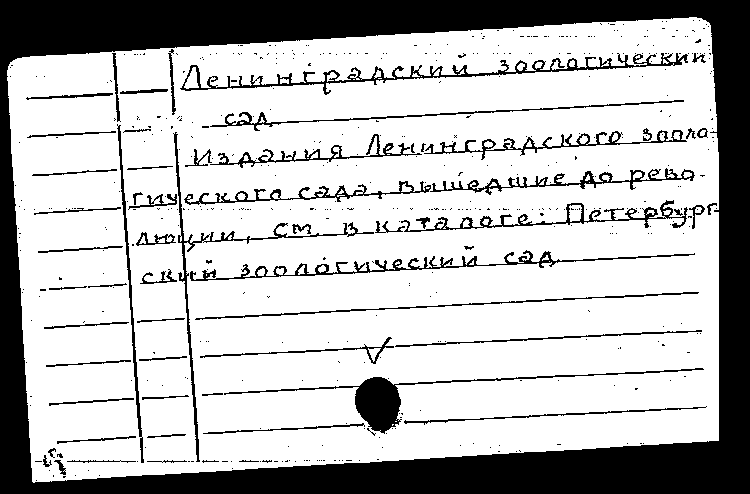 Ленинградский зоологический
сад
Издания Ленинградского зооло-
гического сада, вышедшие до рево-
люции, см. в каталоге: Петербург-
ский зоологический сад